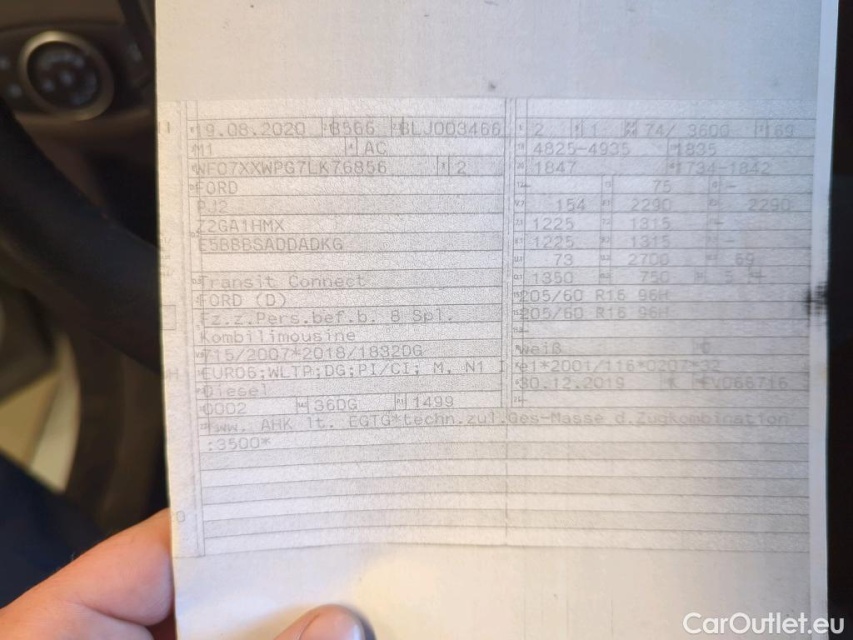 19.08.2020 8566 BLJ003466 2 1 74/ 3600 169
M1 AC 4825-4935 1835
WF07XXWPG7LK76856 2 1847 1734-1842
FORD - 75 -
PJ2 154 2290 2290
Z2GA1HMX 1225 1315 -
E5BBBSADDADKG 1225 1315 -
73 2700 69
Transit Connect 1350 750
FORD (D) 205/60 R16 96H
Fz.z.Pers.bef.b. 8 Spl. 205/60 R16 96H
Kombilimousine -
715/2007*2018/1832DG weiß
EURO6;WLTP;DG;PI/CI; M, N1 I e1*2001/116*0207*32
Diesel 30.12.2019 K
0002 36DG 1499 -
*Zugkombination
:3500*
CarOutlet.eu